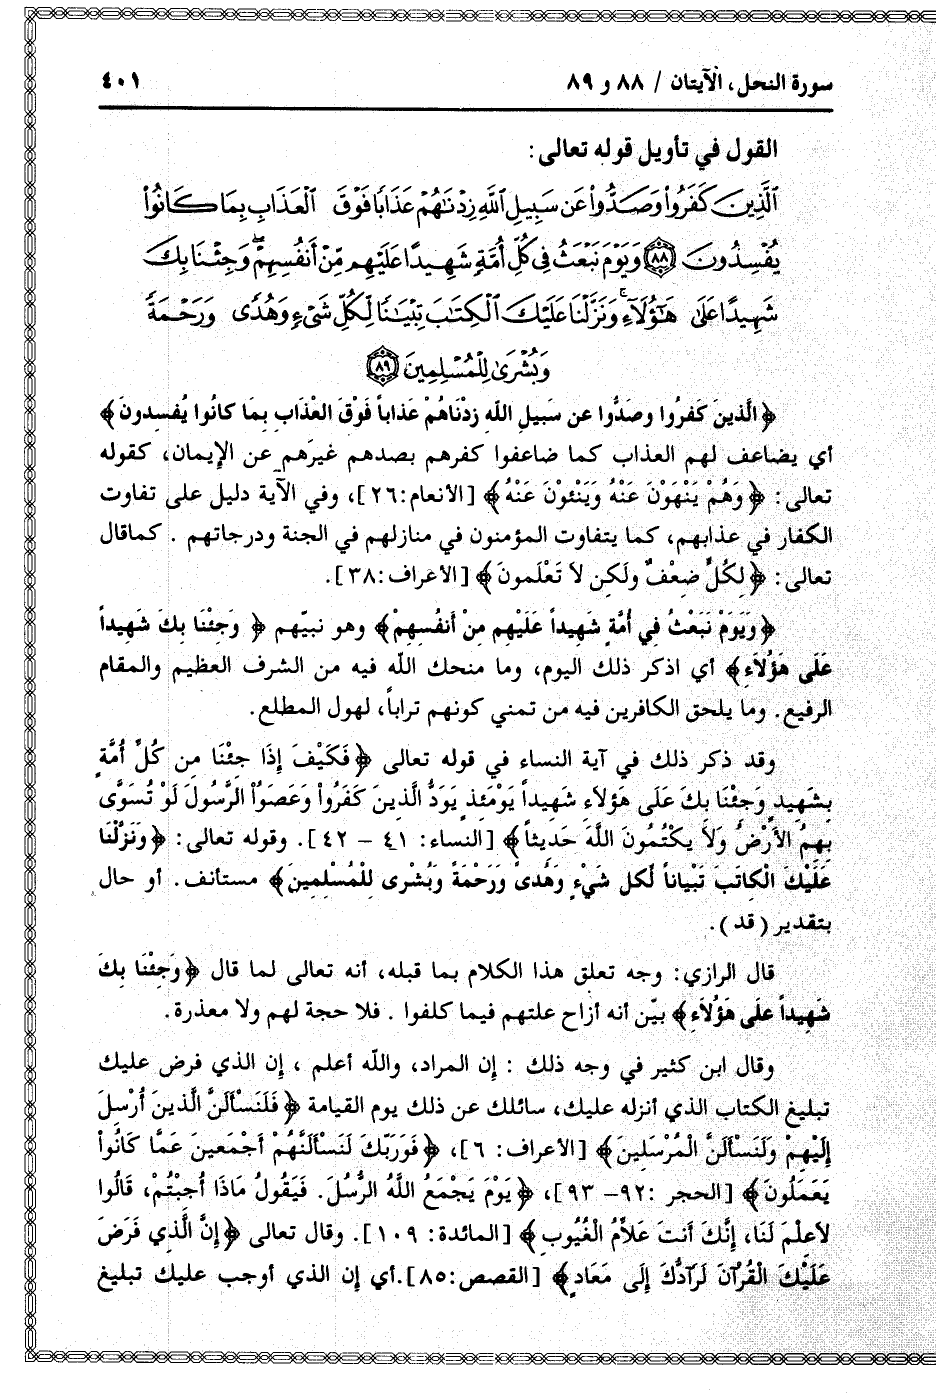 سورة النحل، الآيتان / ٨٨ و ٨٩
٤٠١
القول في تأويل قوله تعالى:
ٱلَّذِينَ كَفَرُوا۟ وَصَدُّوا۟ عَن سَبِيلِ ٱللَّهِ زِدْنَٰهُمْ عَذَابًا فَوْقَ ٱلْعَذَابِ بِمَا كَانُوا۟
يُفْسِدُونَ ٨٨ وَيَوْمَ نَبْعَثُ فِى كُلِّ أُمَّةٍ شَهِيدًا عَلَيْهِم مِّنْ أَنفُسِهِمْ ۖ وَجِئْنَا بِكَ
شَهِيدًا عَلَىٰ هَٰٓؤُلَآءِ ۚ وَنَزَّلْنَا عَلَيْكَ ٱلْكِتَٰبَ تِبْيَٰنًا لِّكُلِّ شَىْءٍ وَهُدًى وَرَحْمَةً
وَبُشْرَىٰ لِلْمُسْلِمِينَ ٨٩
﴿الَّذينَ كَفَرُوا وصَدُّوا عن سَبيلِ اللَّهِ زدْنَاهُمْ عَذاباً فَوْقَ الْعَذَابِ بمَا كانُوا يُفسدونَ﴾
أي يضاعف لهم العذاب كما ضاعفوا كفرهم بصدهم غيرَهم عن الإيمان، كقوله
تعالى: ﴿وَهُمْ يَنْهَوْنَ عَنْهُ وَيَنْئوْنَ عَنْهُ﴾ [الأنعام:٢٦]، وفي الآية دليل على تفاوت
الكفار في عذابهم، كما يتفاوت المؤمنون في منازلهم في الجنة ودرجاتهم . كماقال
تعالى: ﴿لِكُلٍّ ضعْفٌ ولَكِن لاَ تَعْلَمونَ﴾ [الأعراف:٣٨].
﴿وَيَوَمْ نَبَعَثُ فِي أُمَّةٍ شَهِيداً عَلَيْهِم مِنْ أَنفُسِهِمْ﴾ وهو نبيّهم ﴿ وَجئْنَا بكَ شَهيداً
عَلَى هَؤُلاَءِ﴾ أي اذكر ذلك اليوم، وما منحك اللّه فيه من الشرف العظيم والمقام
الرفيع. وما يلحق الكافرين فيه من تمني كونهم تراباً، لهول المطلع.
وقد ذكر ذلك في آية النساء في قوله تعالى ﴿فَكَيْفَ إِذَا جئْنَا مِن كُلِّ أُمَّةٍ
بِشَهِيدٍ وَجِئْنَا بِكَ عَلَى هَؤلاَءِ شَهِيداً يَوْمَئذٍ يَوَدُّ الَّذِينَ كَفَرُواْ وَعَصَوُاْ الرَّسُولَ لَوْ تُسَوَّى
بِهِمُ الأَرْضُ وَلاَ يَكْتُمُونَ اللَّهَ حَدِيثاً﴾ [النساء: ٤١ – ٤٢]. وقوله تعالى: ﴿وَنَزَّلْنَا
عَلَيْكَ الْكاتبَ تَبْياناً لّكل شَيْءٍ وَهُدىً وَرَحْمَةً وَبُشْرى للْمُسْلِمِينَ﴾ مستأنف. أو حال
بتقدير (قد).
قال الرازي: وجه تعلق هذا الكلام بما قبله، أنه تعالى لما قال ﴿وَجِئْنَا بِكَ
شَهِيداً عَلَى هَؤُلاَءِ﴾ بيّن أنه أزاح علتهم فيما كلفوا . فلا حجة لهم ولا معذرة.
وقال ابن كثير في وجه ذلك : إن المراد، واللّه أعلم ، إن الذي فرض عليك
تبليغ الكتاب الذي أنزله عليك، سائلك عن ذلك يوم القيامة ﴿فَلَنَسْأَلَنَّ الَّذِينَ أُرْسِلَ
إِلَيْهِمْ وَلَنَسْأَلَنَّ الْمُرْسَلِينَ﴾ [الأعراف: ٦]، ﴿فَوَرَبِّكَ لَنَسْأَلَنَّهُمْ أَجْمَعينَ عَمَّا كَانُواْ
يَعَمَلُونَ﴾ [الحجر :٩٢– ٩٣]، ﴿يَوْمَ يَجْمَعُ اللَّهُ الرُّسُلَ. فَيَقُولُ مَاذَا أُجِبْتُمْ، قَالُوا
لاَعِلْمَ لَنَا، إنَّكَ أَنتَ عَلاَّمُ الْغُيُوبِ﴾ [المائدة: ١٠٩]. وقال تعالى ﴿إِنَّ الَّذِي فَرَضَ
عَلَيْكَ الْقُرْآنَ لَرَآدُّكَ إِلَى مَعَادٍ﴾ [القصص:٨٥].أي إن الذي أوجب عليك تبليغ